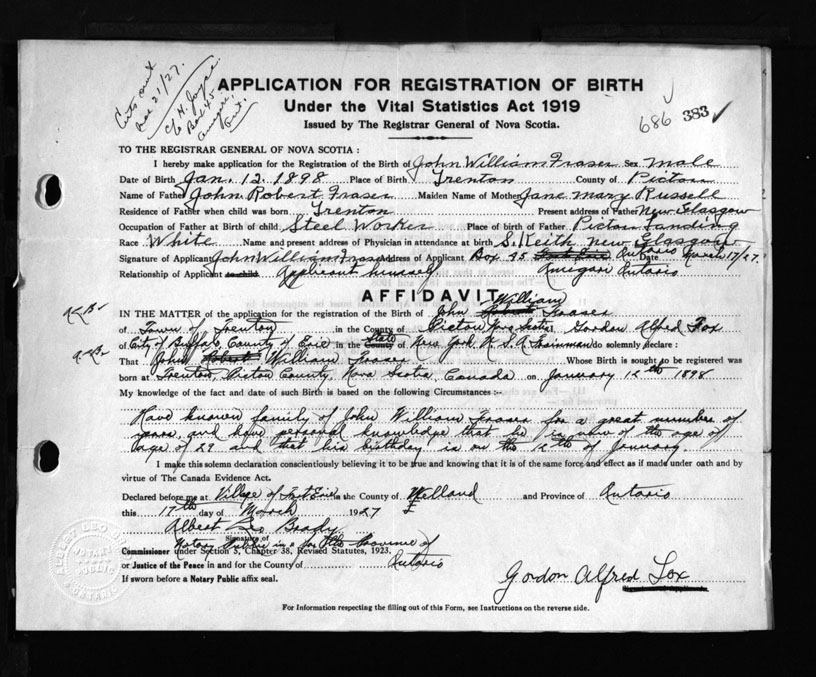 Certs sent
Mar 21/27.
c/o H. Joyce
Box 45
Amigari,
Ont.
APPLICATION FOR REGISTRATION OF BIRTH
Under the Vital Statistics Act 1919
Issued by The Registrar General of Nova Scotia.
686 383 ✓
TO THE REGISTRAR GENERAL OF NOVA SCOTIA :
I hereby make application for the Registration of the Birth of John William Fraser Sex male
Date of Birth Jan. 12. 1898 Place of Birth Trenton County of Pictou
Name of Father John Robert Fraser Maiden Name of Mother Jane Mary Russell
Residence of Father when child was born Trenton Present address of Father New Glasgow
Occupation of Father at Birth of child Steel Worker Place of birth of Father Pictou Landing
Race White Name and present address of Physician in attendance at birth S. Keith New Glasgow
Signature of Applicant John William Fraser Address of Applicant Box 45 Ontario Date March 17/27.
Relationship of Applicant to child Applicant himself Amigari Ontario
AFFIDAVIT
William
IN THE MATTER of the application for the registration of Birth of John Robert Fraser
of Town of Trenton in the County of Pictou Nova Scotia, Gordon Alfred Fox
of City of Buffalo, County of Erie in the County State of New York, U.S.A. Trainman do solemnly declare :
That John Robert William Fraser Whose Birth is sought to be registered was
born at Trenton, Pictou County, Nova Scotia, Canada on January 12th 1898
My knowledge of the fact and date of such Birth is based on the following Circumstances :–
Have known family of John William Fraser for a great number of
years, and have personal knowledge that he is now of the age of
age of 29 and that his birthday is on the 12th of January
I make this solemn declaration conscientiously believing it to be true and knowing that it is of the same force and effect as if made under oath and by
virtue of The Canada Evidence Act.
Declared before me at Village of Fort Erie in the County of Welland and Province of Ontario
this 17th day of March 1927
Albert Leo Brady
Signature of
Notary Public in & for the Province of
Commissioner under Section 3, Chapter 38, Revised Statutes, 1923.
or Justice of the Peace in and for the County of Ontario
If sworn before a Notary Public affix seal.
Gordon Alfred Fox
For Information respecting the filling out of this Form, see Instructions on the reverse side.
ALBERT LEO
NOTARY
PUBLIC
ONTARIO